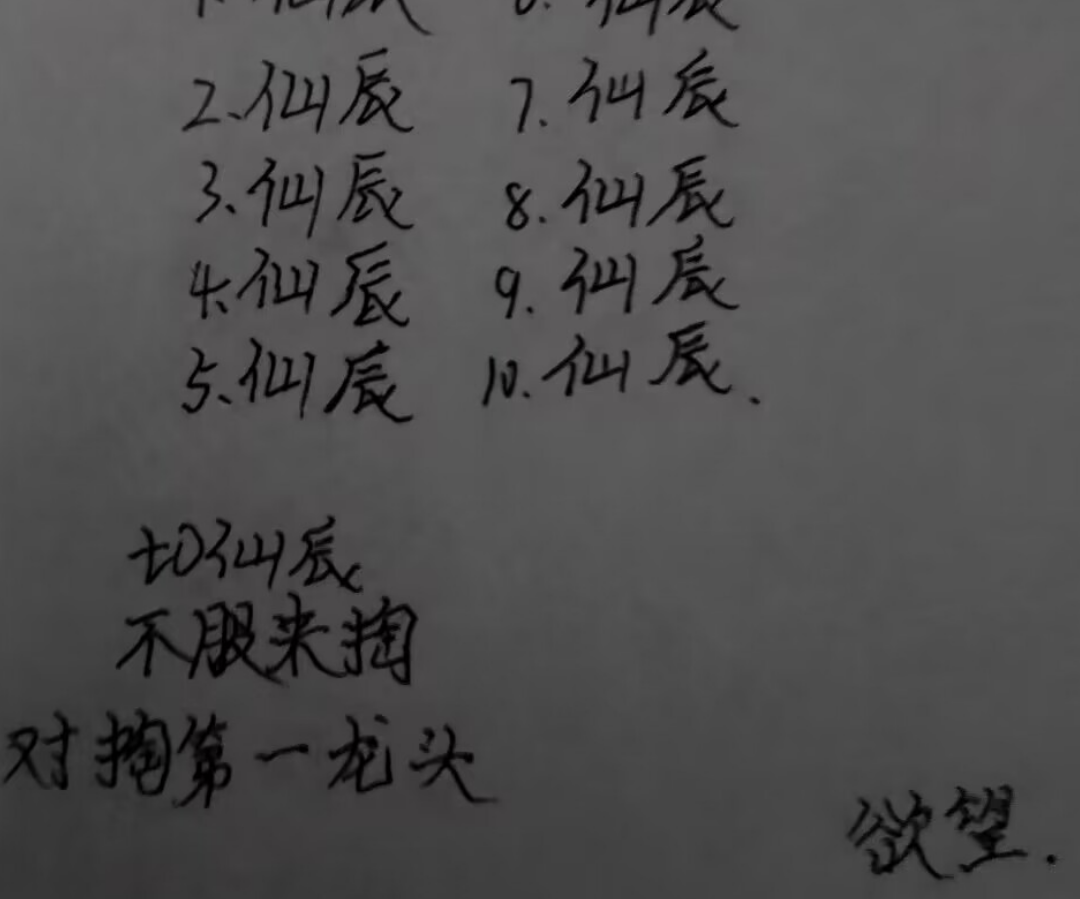 1.仙辰 6.仙辰
2、仙辰 7.仙辰
3、仙辰 8.仙辰
4、仙辰 9.仙辰
5、仙辰 10.仙辰.
仙辰
不服来掏
对掏第一龙头
欲望.